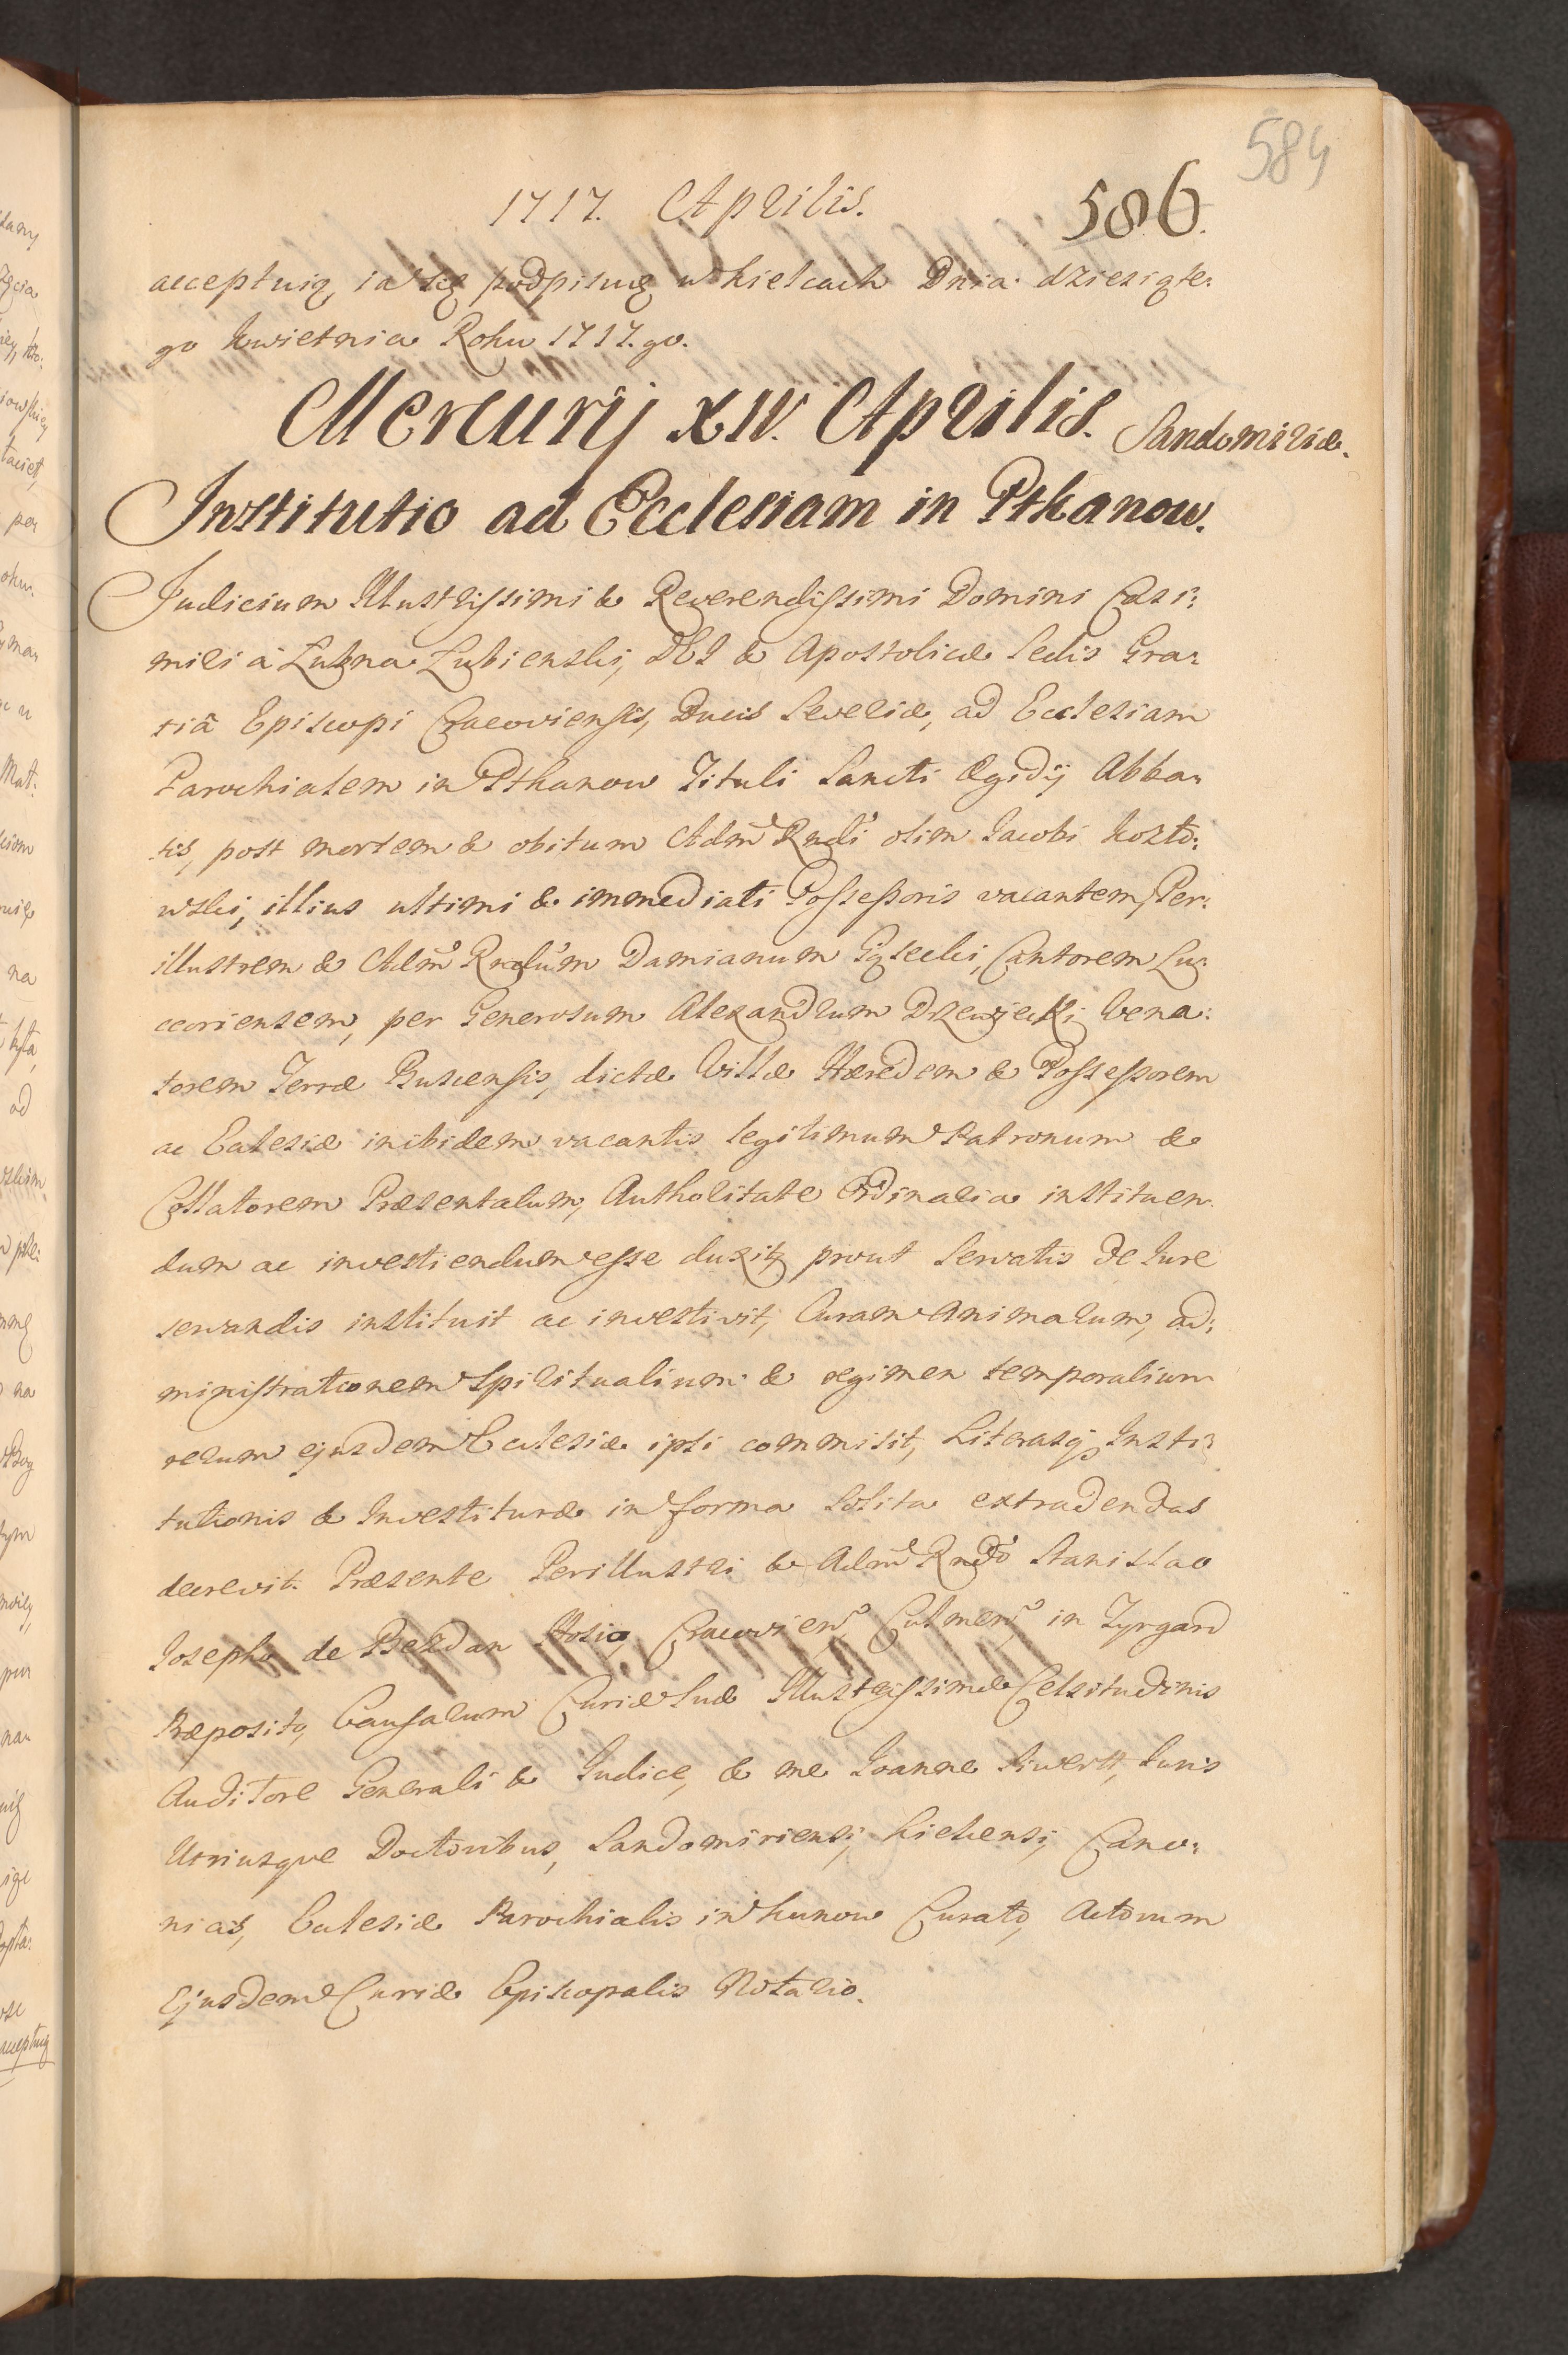 584
1717. Aprilis. 586.
acceptuię, ia się podpisuię w Kielcach Dnia dziesiąte:
go Kwietnia Roku 1717.go.
Mercurij XIV. Aprilis. Sandomiriæ.
Institutio ad Ecclesiam in Pthanow.
Judicium Illustrissimi & Reverendissimi Domini Casi:
miri à Łubna Łubienski, DEI & Apostolicæ Sedis Gra:
tiâ Episcopi Cracoviensis, Ducis Severiæ, ad Ecclesiam
Parochialem in Pthanow Tituli Sancti Ægidij Abba:
tis, post mortem & obitum Adm Rndi olim Jacobi Kozło:
wski, illius ultimi & immediati Possessoris vacantem, Per:
illustrem & Adm Rndum Damianum Gąsecki, Cantorem Lu:
ceoriensem, per Generosum Alexandrum Drzewiecki Vena:
torem Terræ Buscensis, dictæ Villæ Hæredem & Possessorem
ac Eclesiæ inibidem vacantis legitimum Patronum &
Collatorem Præsentatum, Authoritate Ordinaria instituen:
dum ac investiendum esse duxit, prout servatis de Jure
servandis instituit ac investivit, Curam Animarum, ad:
ministrationem Spiritualium & regimen temporalium
rerum ejusdem Eclesiæ ipsi commisit, Literasq Insti:
tutionis & Investituræ in forma solita extradendas
decrevit. Præsente Perillustri & Adm Rndo Stanislao
Josepho de Bezdan Hosio, Cracovien, Culmen, in Tyrgard
Præposito, Causarum Curiæ Suæ Illustrissimæ Celsitudinis
Auditore Generali & Judice, & me Joanne Siwertt, Juris
Utriusque Doctoribus, Sandomiriensi, Kielcensi, Cano:
nicis, Eclesiæ Parochialis in Kunow Curato, Actorum
Ejusdem Curiæ Episcopalis Notario.